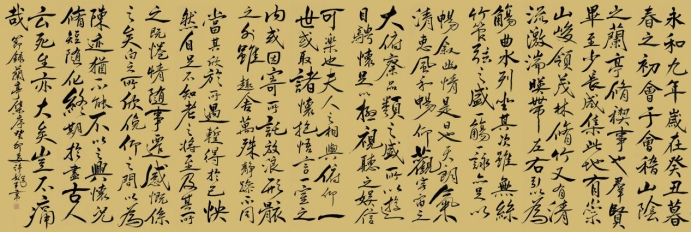 永和九年歲在癸丑暮
春之初會于會稽山陰
之蘭亭脩禊事也群賢
畢至少長咸集此地有崇
山峻領茂林脩竹又有清
流激湍暎帶左右引以為
觴曲水列坐其次雖無絲
竹管弦之盛一觴一詠亦足以
暢敘幽情是日也天朗氣
清惠風和暢仰觀宇宙之
大俯察品類之盛所以遊
目騁懷足以極視聽之娛信
可樂也夫人之相與俯仰一
世或取諸懷抱悟言一室之
內或因寄所託放浪形骸
之外雖趣舍萬殊靜躁不同
當其欣於所遇暫得於己怏
然自足不知老之將至及其所
之既惓情隨事遷感慨係
之矣向之所欣俛仰之間以為
陳迹猶不能不以之興懷況
脩短隨化終期於盡古人
云死生亦大矣豈不痛
哉 節錄蘭亭集序癸卯